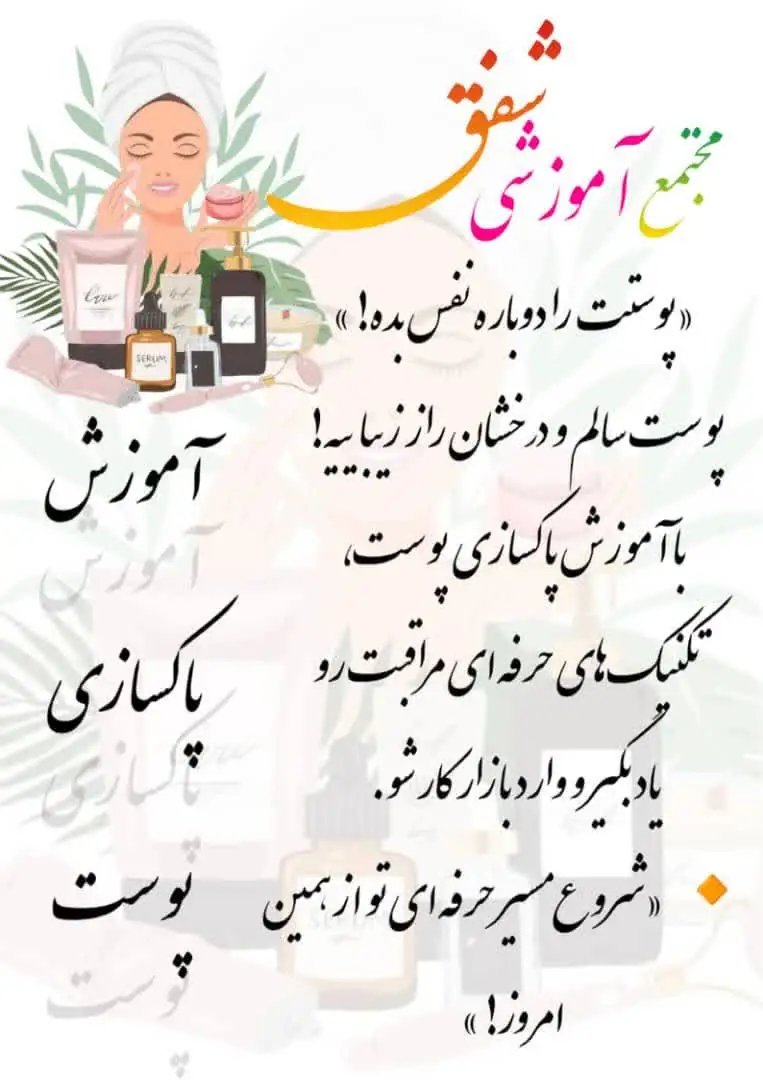 مجتمع آموزشی شفق
«پوستت را دوباره نفس بده!»
پوست سالم و درخشان راز زیباییه!
با آموزش پاکسازی پوست،
تکنیک‌های حرفه‌ای مراقبت رو
یاد بگیر و وارد بازار کار شو.
«شروع مسیر حرفه‌ای تو از همین
امروز!»
آموزش
آموزش
پاکسازی
پاکسازی
پوست
پوست
SERUM